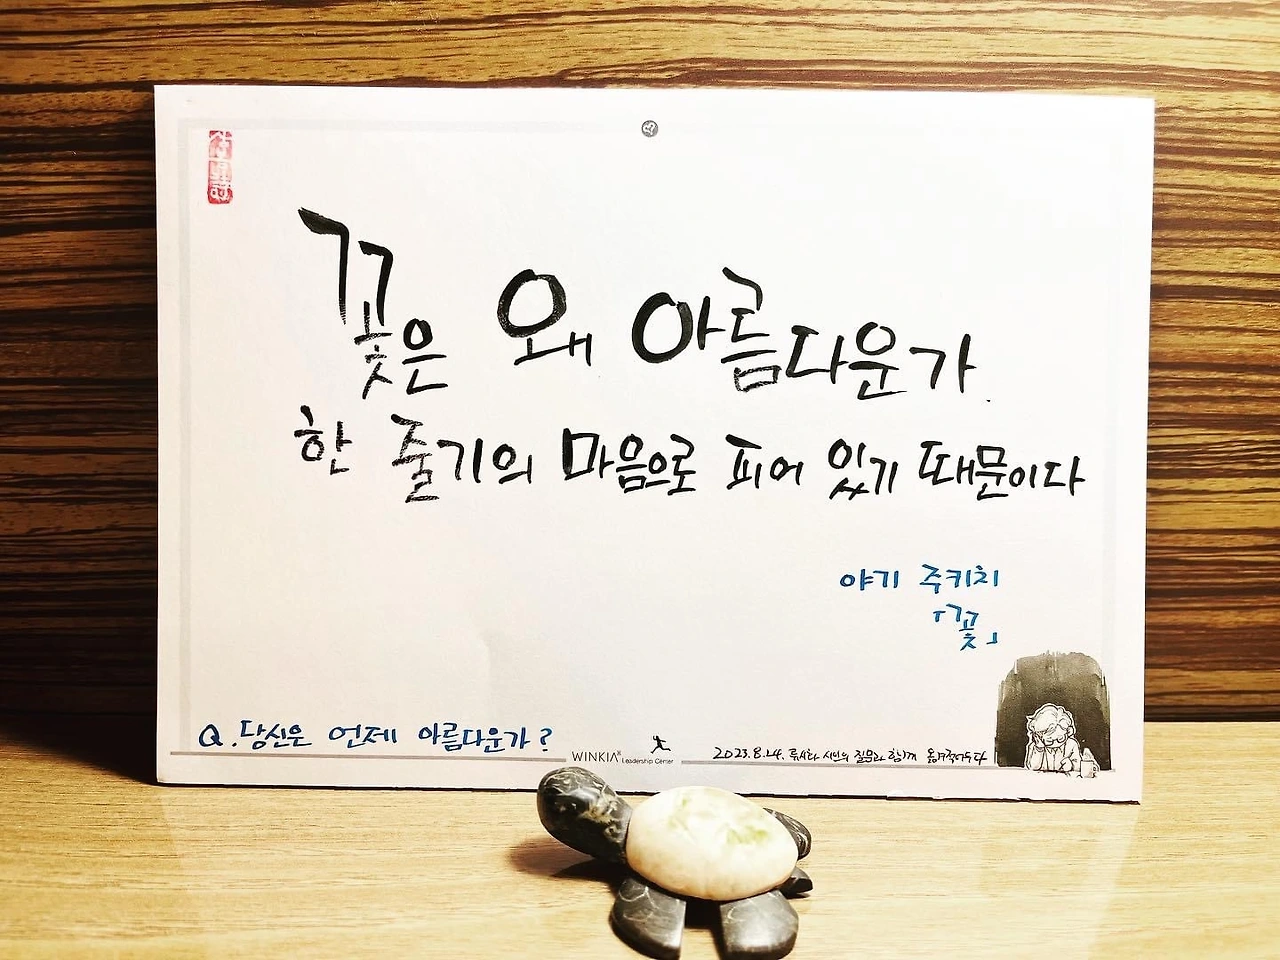 꽃은 왜 아름다운가
한 줄기의 마음으로 피어 있기 때문이다
야기 주키치
「꽃」
Q. 당신은 언제 아름다운가?
WINKIA Leadership Center
2023.8.24. 류시화 시인의 질문과 함께 옮겨적어두다